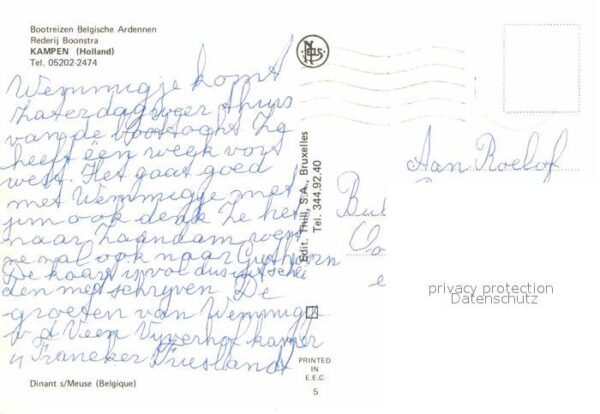 Bootreizen Belgische Ardennen
Rederij Boonstra
KAMPEN (Holland)
Tel. 05202-2474
Wemmigje komt
Zaterdag weer thuis
van de boottocht. Ze
heeft één week
west. Het gaat goed
met Wemmigje met
jim ook denk ze hen
naar Zaandam
ook naar Giethoorn
De kaart is vol dus
den met schrijven De
groeten van Wemmigje
v d Veen Vijverhof kamer
4 Franeker Friesland
Dinant s/Meuse (Belgique)
NELS
Edit. Thill, S.A., Bruxelles
Tel. 344.92.40
PRINTED
IN
E.E.C.
5
Aan Roelof
privacy protection
Datenschutz